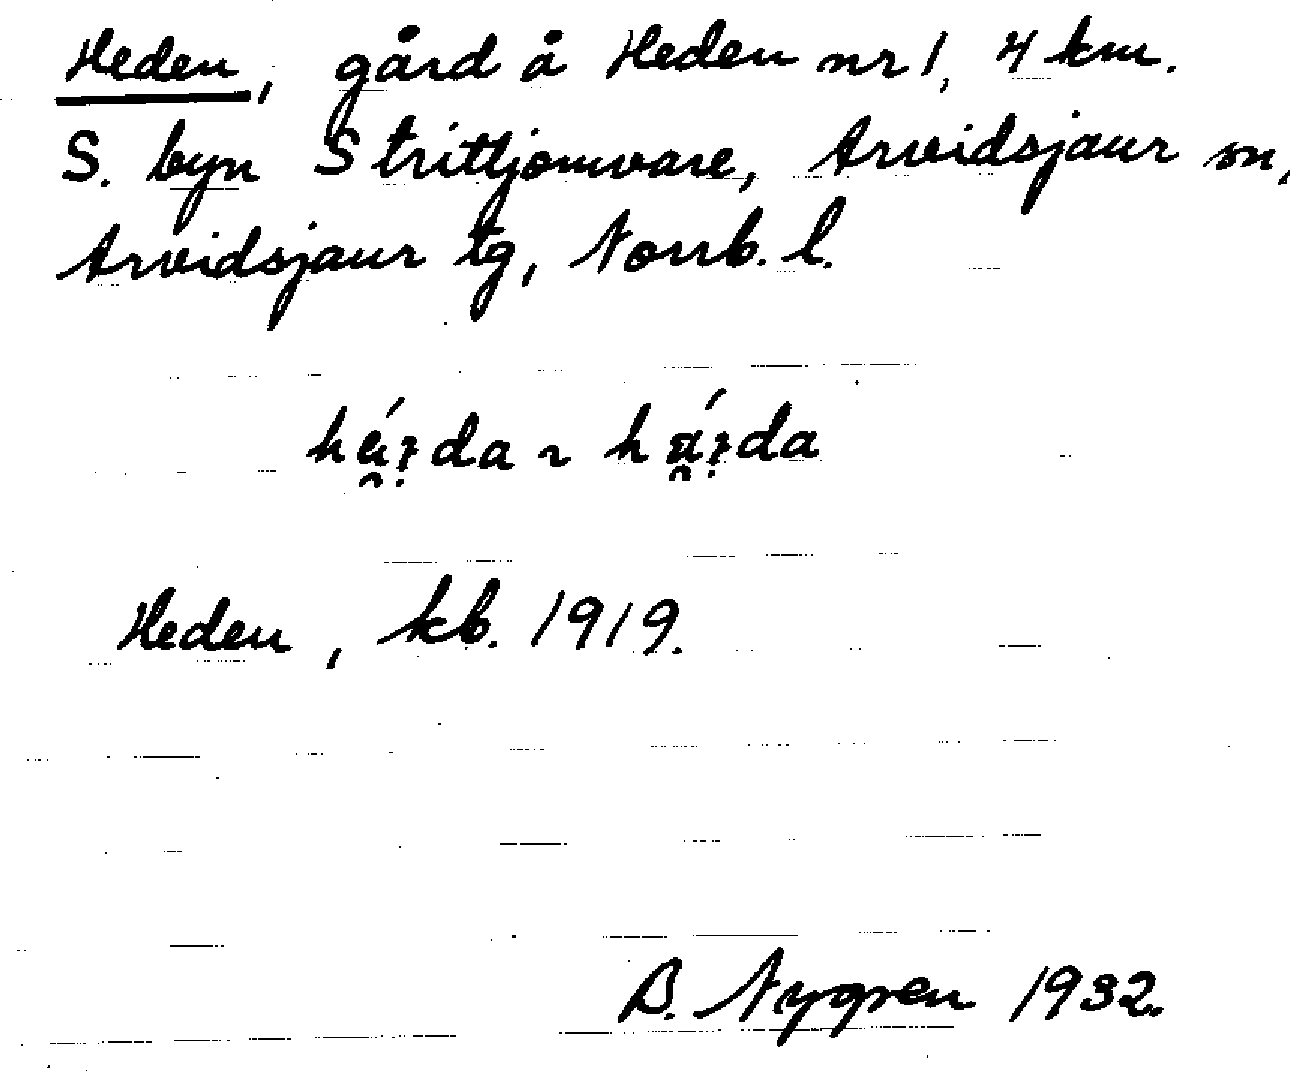 Heden, gård å Heden nr 1, 4 km.
S. byn Strittjomvare, Arvidsjaur sn,
Arvidsjaur tg, Norrb. l.
Heden, kb. 1919.
B. Nygren 1932.